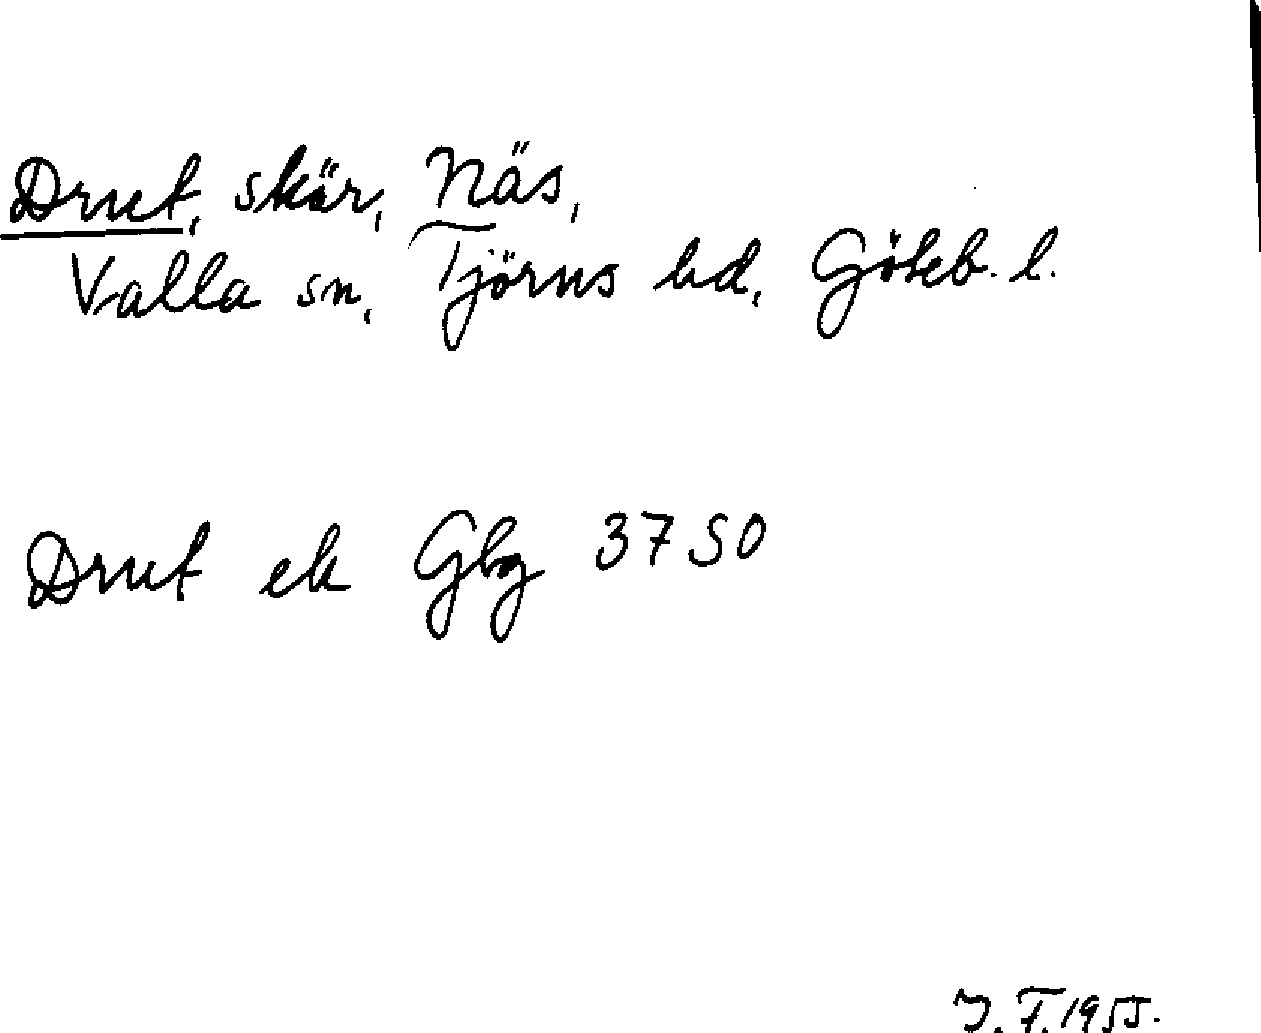 Drut, skär, Näs,
Valla sn, Tjörns hd, Göteb. l.
Drut ek Gbg 3750
J. F. 1955.